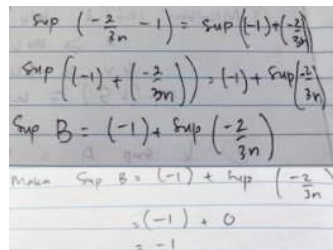 Sup (-2/3n - 1) = Sup ((-1) + (-2/3n))
Sup ((-1) + (-2/3n)) = (-1) + Sup (-2/3n)
Sup B = (-1) + Sup (-2/3n)
Maka Sup B = (-1) + Sup (-2/3n)
= (-1) + 0
= -1